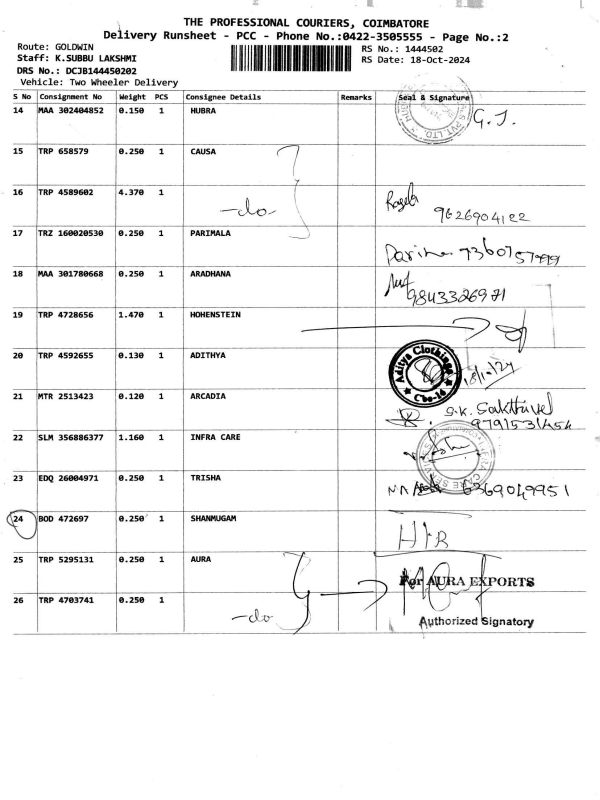 THE PROFESSIONAL COURIERS, COIMBATORE
Delivery Runsheet - PCC - Phone No.:0422-3505555 - Page No.:2
Route: GOLDWIN RS No.: 1444502
Staff: K.SUBBU LAKSHMI RS Date: 18-Oct-2024
DRS No.: DCJB144450202
Vehicle: Two Wheeler Delivery
S No Consignment No Weight PCS Consignee Details Remarks Seal & Signature
14 MAA 302404852 0.150 1 HUBRA G.J.
15 TRP 658579 0.250 1 CAUSA
16 TRP 4589602 4.370 1 -do-
9626904122
17 TRZ 160020530 0.250 1 PARIMALA
18 MAA 301780668 0.250 1 ARADHANA
9843326971
19 TRP 4728656 1.470 1 HOHENSTEIN
20 TRP 4592655 0.130 1 ADITHYA
Aditya Clothings
Cbe-14
18/10/24
21 MTR 2513423 0.120 1 ARCADIA S.K. Sakthivel
9791531454
22 SLM 356886377 1.160 1 INFRA CARE
23 EDQ 26004971 0.250 1 TRISHA 6369049951
24 BOD 472697 0.250 1 SHANMUGAM
25 TRP 5295131 0.250 1 AURA For AURA EXPORTS
26 TRP 4703741 0.250 1 -do- Authorized Signatory